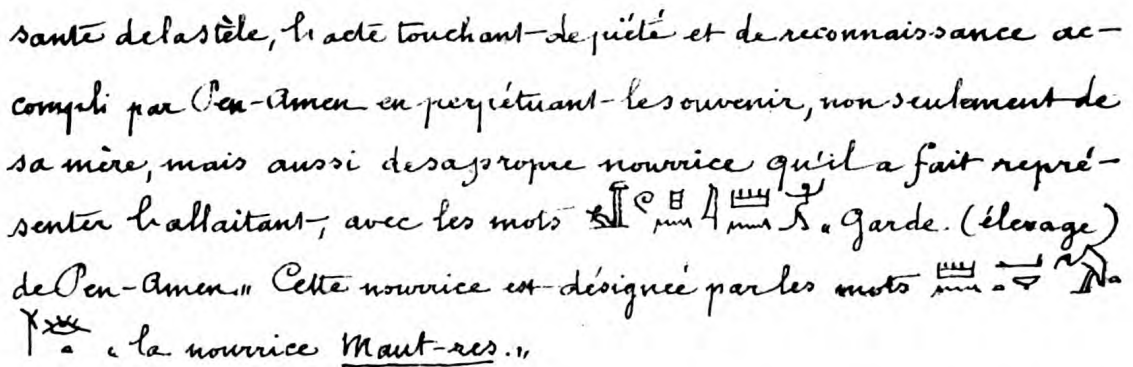 sante de la stèle, l'acte touchant de piété et de reconnaissance ac-
compli par Pen-Amen en perpétuant le souvenir, non seulement de
sa mère, mais aussi de sa propre nourrice qu'il a fait repré-
senter l'allaitant, avec les mots « Garde. (élevage)
de Pen-Amen » Cette nourrice est désignée par les mots
« la nourrice Maut-res. »